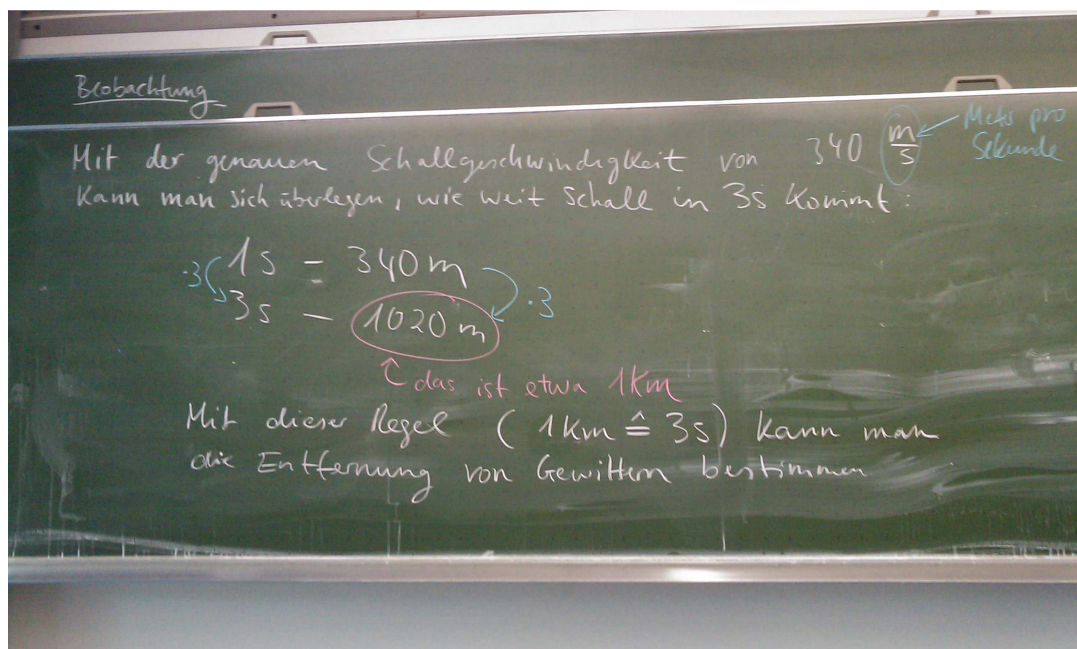 Beobachtung
Mit der genauen Schallgeschwindigkeit von 340 m/s
Meter pro
Sekunde
kann man sich überlegen, wie weit Schall in 3s kommt:
·3 1s – 340m ·3
3s – 1020m
das ist etwa 1km
Mit dieser Regel (1km ≙ 3s) kann man
die Entfernung von Gewittern bestimmen